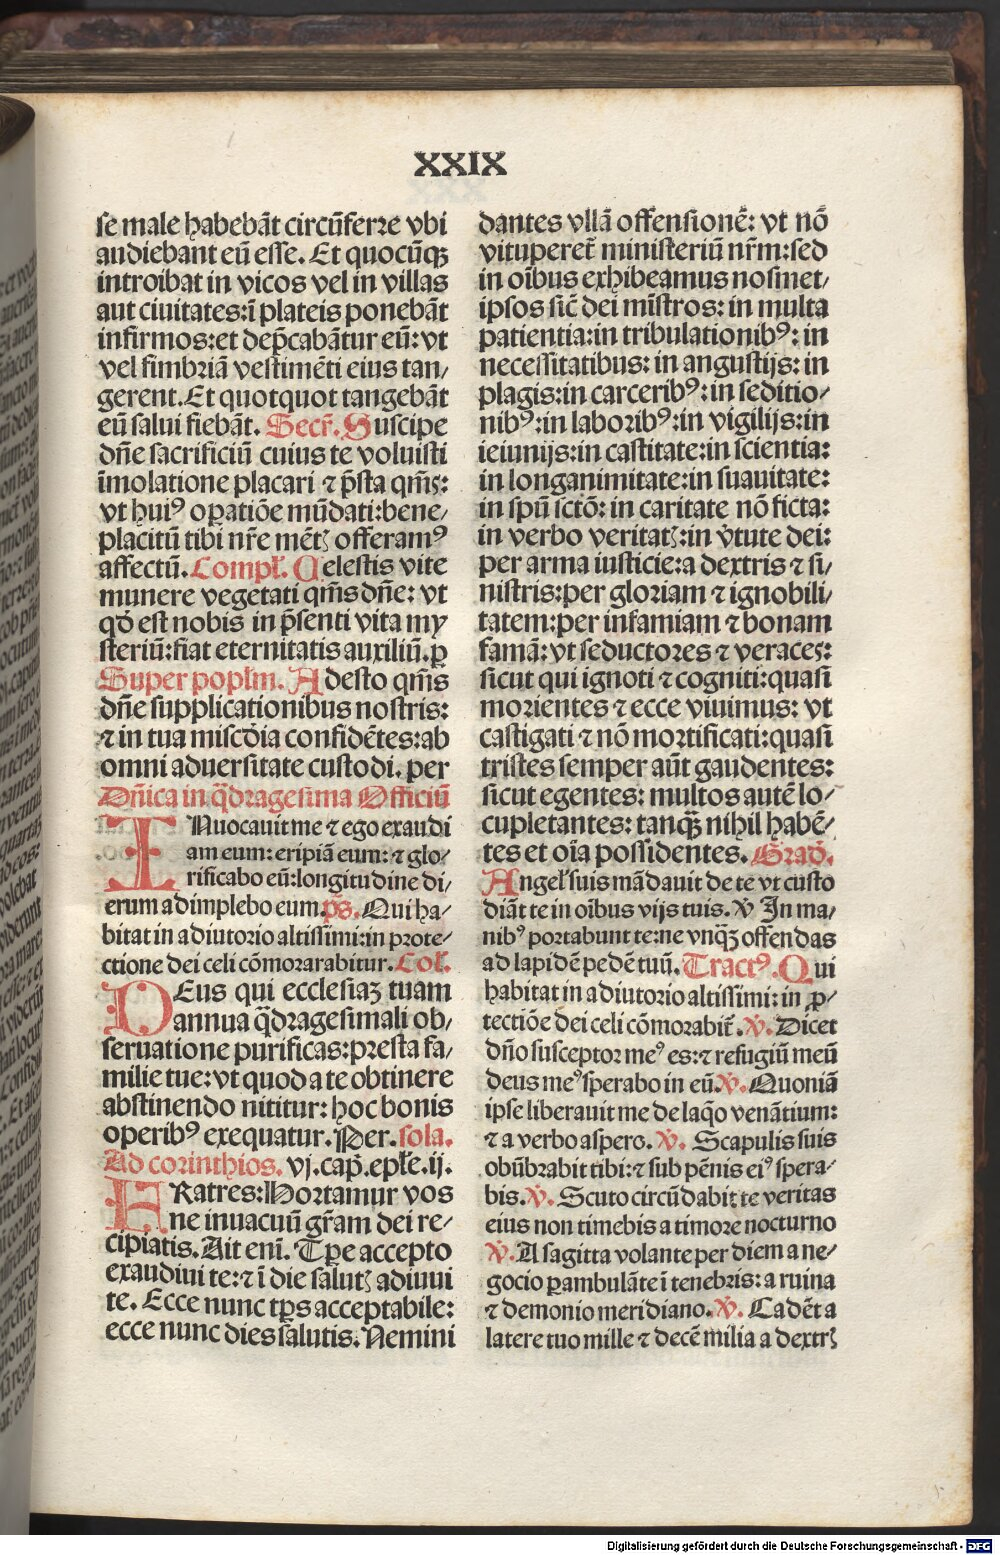 XXIX
se male habebāt circūferre vbi
audiebant eū esse. Et quocūqȝ
introibat in vicos vel in villas
aut ciuitates: ī plateis ponebāt
infirmos: et dep̄cabātur eū: vt
vel fimbriā vestimēti eius tan⸗
gerent. Et quotquot tangebāt
eū salui fiebāt. Secr̄. Suscipe
dn̄e sacrificiū cuius te voluisti
īmolatione placari ⁊ p̄sta qm̄s:
vt huiꝰ oꝑatiōe mūdati: bene⸗
placitū tibi nr̄e mētꝭ offeramꝰ
affectū. Compł. Celestis vite
munere vegetati qm̄s dn̄e: vt
qd̄ est nobis in p̄senti vita my
steriū: fiat eternitatis auxiliū. ꝑ
Super popłm. Adesto qm̄s
dn̄e supplicationibus nostris:
⁊ in tua miscd̄ia confidētes: ab
omni aduersitate custodi. per
Dn̄ica in q̄dragesima Officiū
INuocauit me ⁊ ego exaudi
am eum: eripiā eum: ⁊ glo⸗
rificabo eū: longitudine di⸗
erum adimplebo eum. ps̄. Qui ha⸗
bitat in adiutorio altissimi: in prote⸗
ctione dei celi cōmorarabitur. Coł.
DEus qui ecclesiaȝ tuam
annua q̄dragesimali ob⸗
seruatione purificas: presta fa⸗
milie tue: vt quod a te obtinere
abstinendo nititur: hoc bonis
operibꝰ exequatur. Per. sola.
Ad corinthios. vj. cap̄. epłe. ij.
FRatres: Hortamur vos
ne inuacuū gr̄am dei re⸗
cipiatis. Ait enī. Tp̄e accepto
exaudiui te: ⁊ ī die salutꝭ adiuui
te. Ecce nunc tp̄s acceptabile:
ecce nunc dies salutis. Nemini
dantes vllā offensionē: vt nō
vituperet̄ ministeriū nr̄m: sed
in oībus exhibeamus nosmet⸗
ipsos sic̄ dei mīstros: in multa
patientia: in tribulationibꝰ: in
necessitatibus: in angustijs: in
plagis: in carceribꝰ: in seditio⸗
nibꝰ: in laboribꝰ: in vigilijs: in
ieiunijs: in castitate: in scientia:
in longanimitate: in suauitate:
in spū sctō: in caritate nō ficta:
in verbo veritatꝭ: in v̄tute dei:
per arma iusticie: a dextris ⁊ si⸗
nistris: per gloriam ⁊ ignobili⸗
tatem: per infamiam ⁊ bonam
famā: vt seductores ⁊ veraces:
sicut qui ignoti ⁊ cogniti: quasi
morientes ⁊ ecce viuimus: vt
castigati ⁊ nō mortificati: quasi
tristes semper aūt gaudentes:
sicut egentes: multos autē lo⸗
cupletantes: tanqȝ nihil habē⸗
tes et oīa possidentes. Grad̄.
Angeł suis mādauit de te vt custo
diāt te in oībus vijs tuis. ℣ In ma⸗
nibꝰ portabunt te: ne vnqȝ offendas
ad lapidē pedē tuū. Tractꝰ. Qui
habitat in adiutorio altissimi: in ꝓ⸗
tectiōe dei celi cōmorabit̄. ℣. Dicet
dn̄o susceptor meꝰ es: ⁊ refugiū meū
deus meꝰ sperabo in eū. ℣. Quoniā
ipse liberauit me de laq̄o venātium:
⁊ a verbo aspero. ℣. Scapulis suis
obūbrabit tibi: ⁊ sub pēnis eiꝰ spera⸗
bis. ℣. Scuto circūdabit te veritas
eius non timebis a timore nocturno
℣. A sagitta volante per diem a ne⸗
gocio ꝑambulāte ī tenebris: a ruina
⁊ demonio meridiano. ℣. Cadēt a
latere tuo mille ⁊ decē milia a dextrꝭ
Digitalisierung gefördert durch die Deutsche Forschungsgemeinschaft - DFG